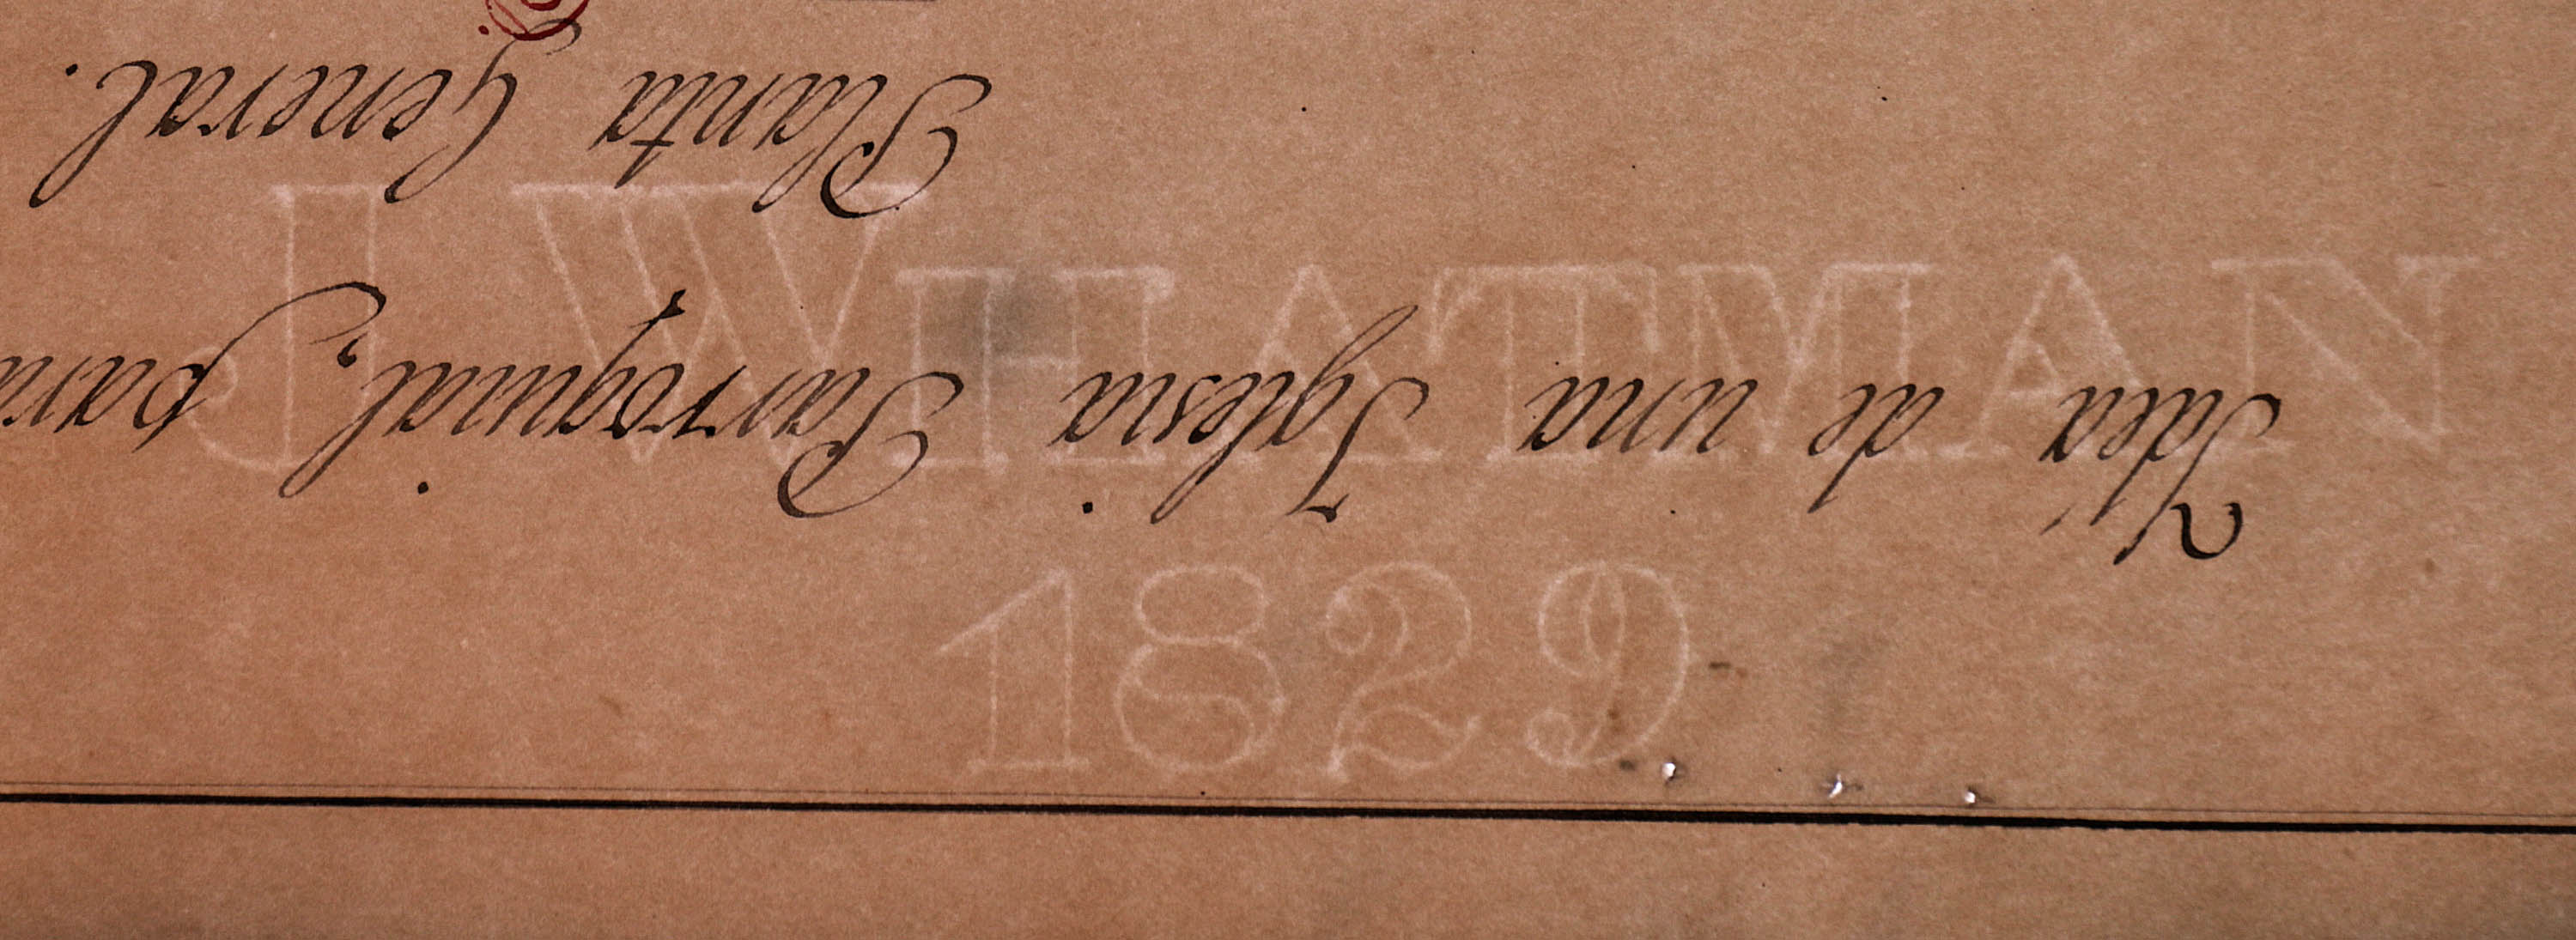 Idea de una Iglesia Parroquial, para
Planta General.
J WHATMAN
1829